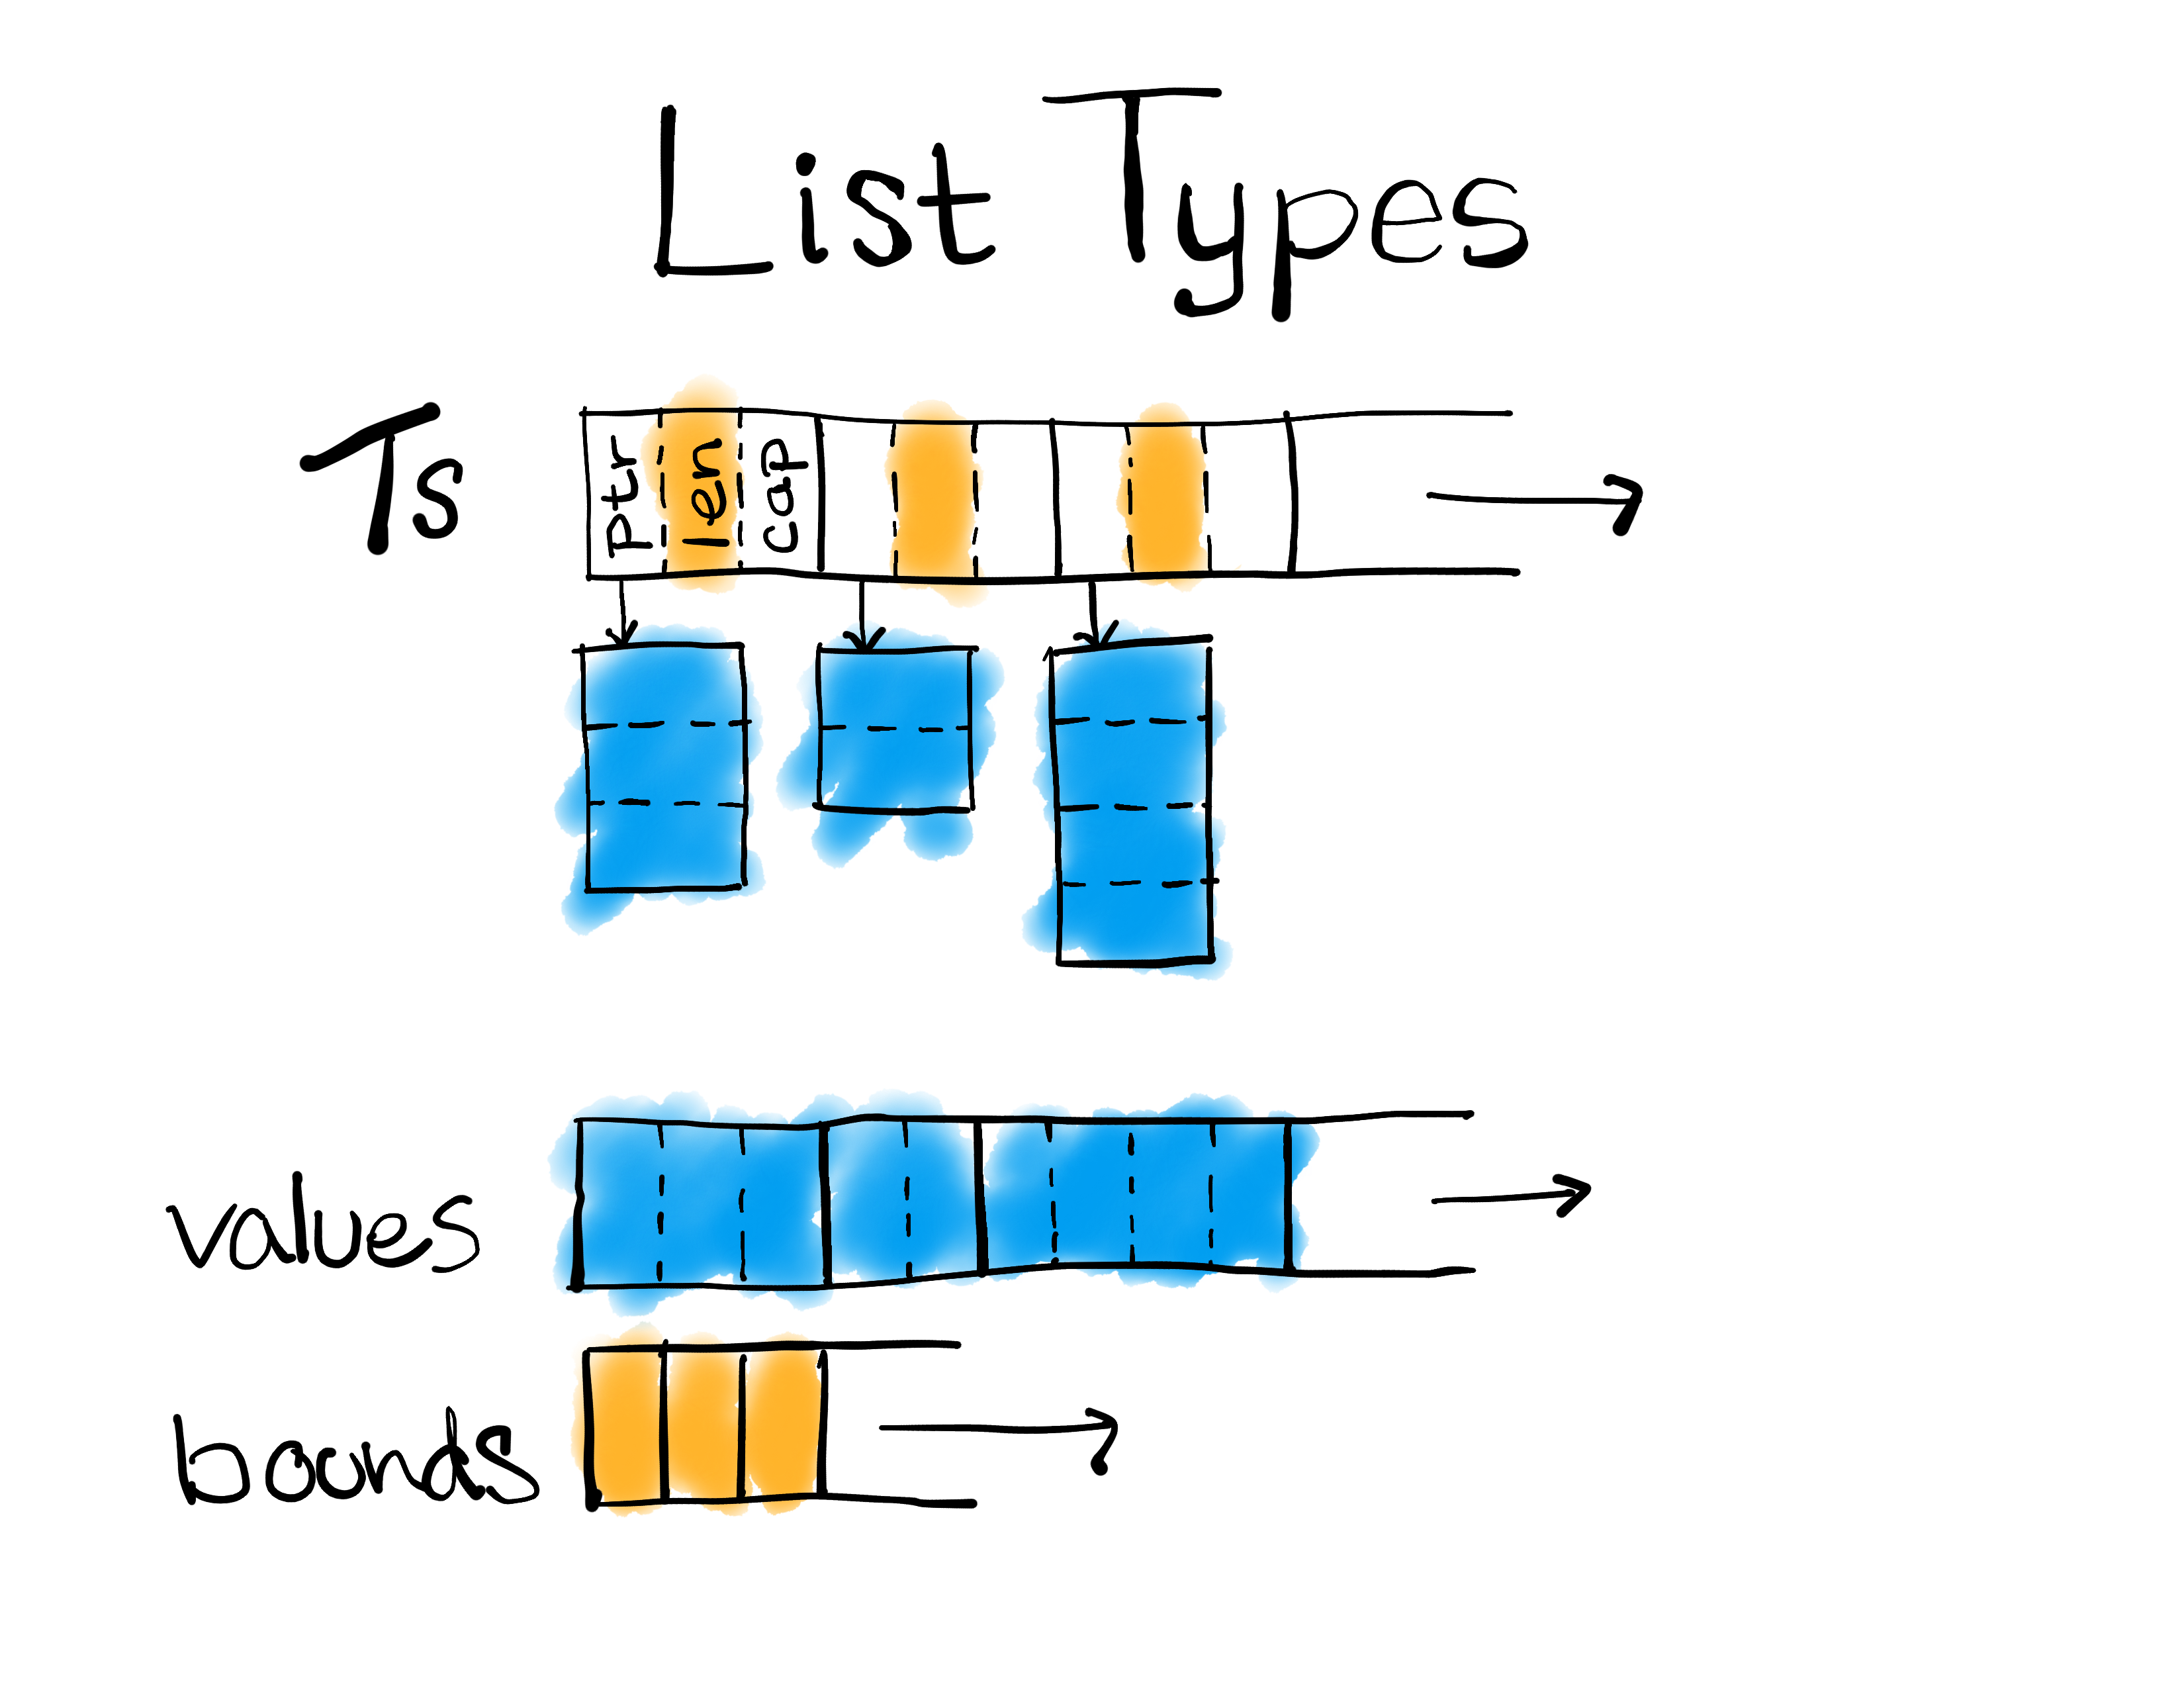 List Types
Ts
ptr
len
cap
values
bounds